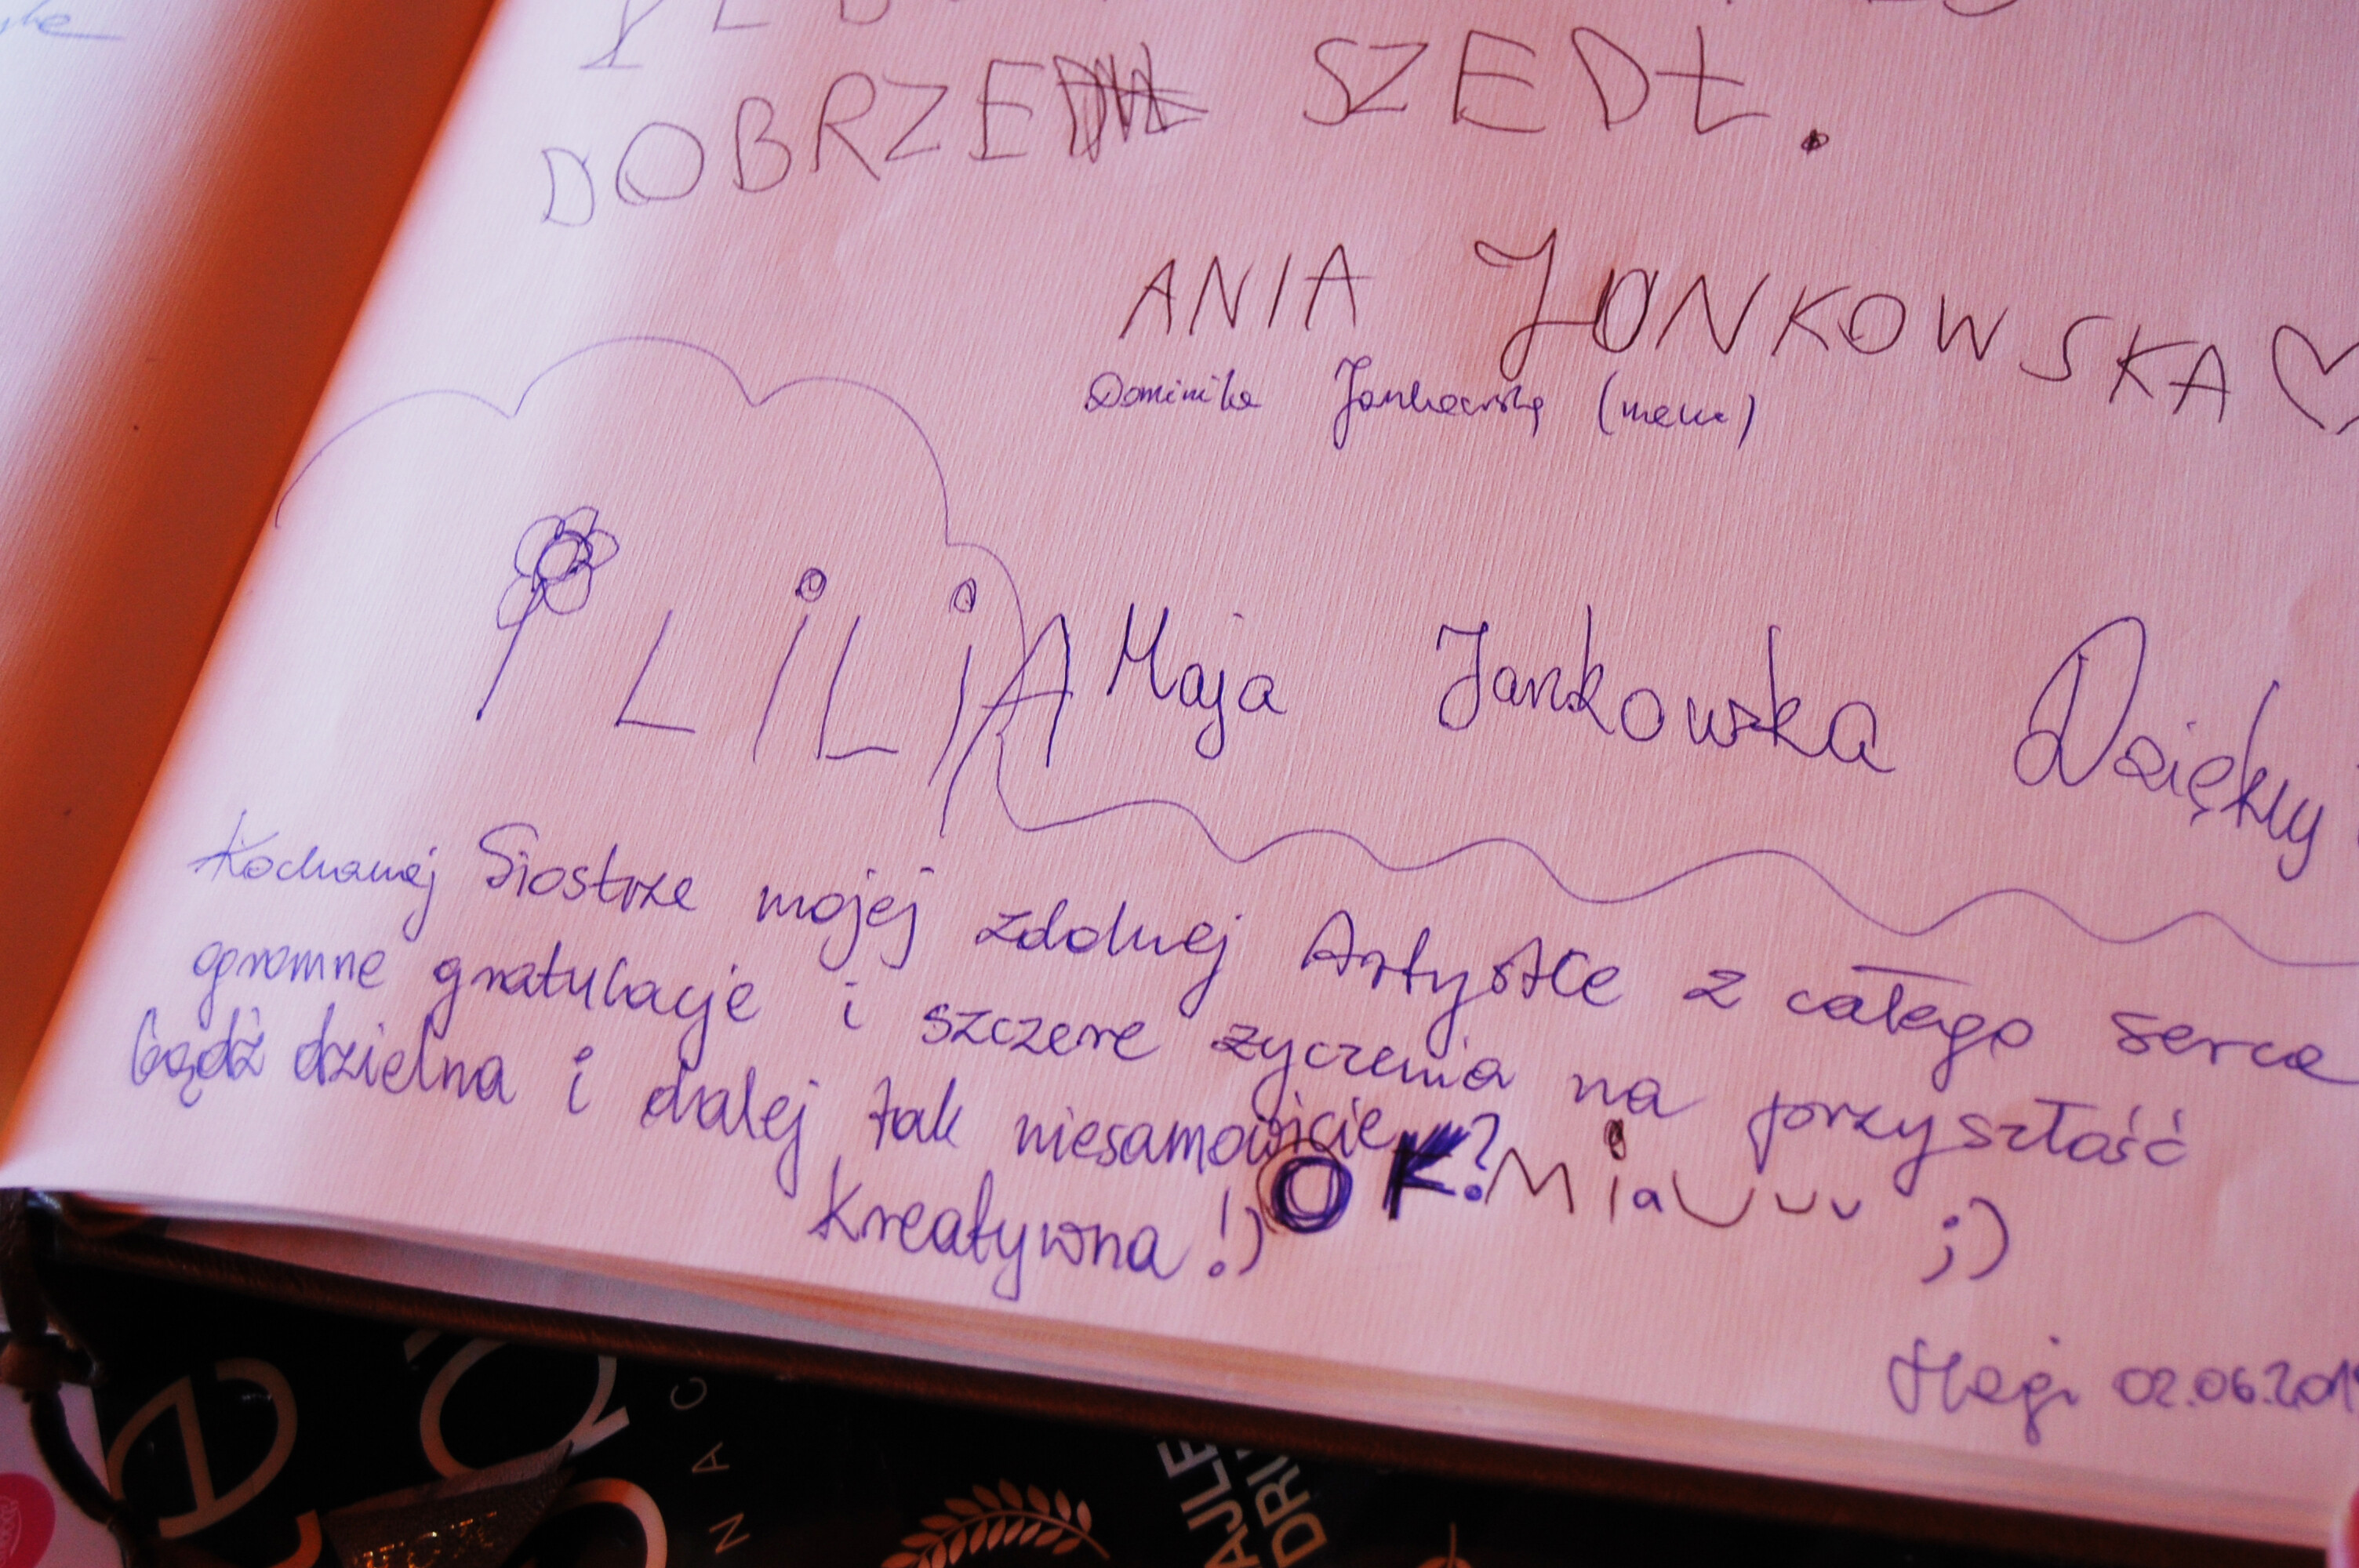 DOBRZE SZEDŁ.
ANIA JONKOWSKA
Dominika Jankowska (mama)
LiLiA Maja Jankowska Dzięky
Kochanej Siostrze mojej zdolnej Artystce z całego serca
ogromne gratulacje i szczere życzenia na przyszłość
bądź dzielna i dalej tak niesamowicie
kreatywna!) OK? Miauuu ;)
02.06.201